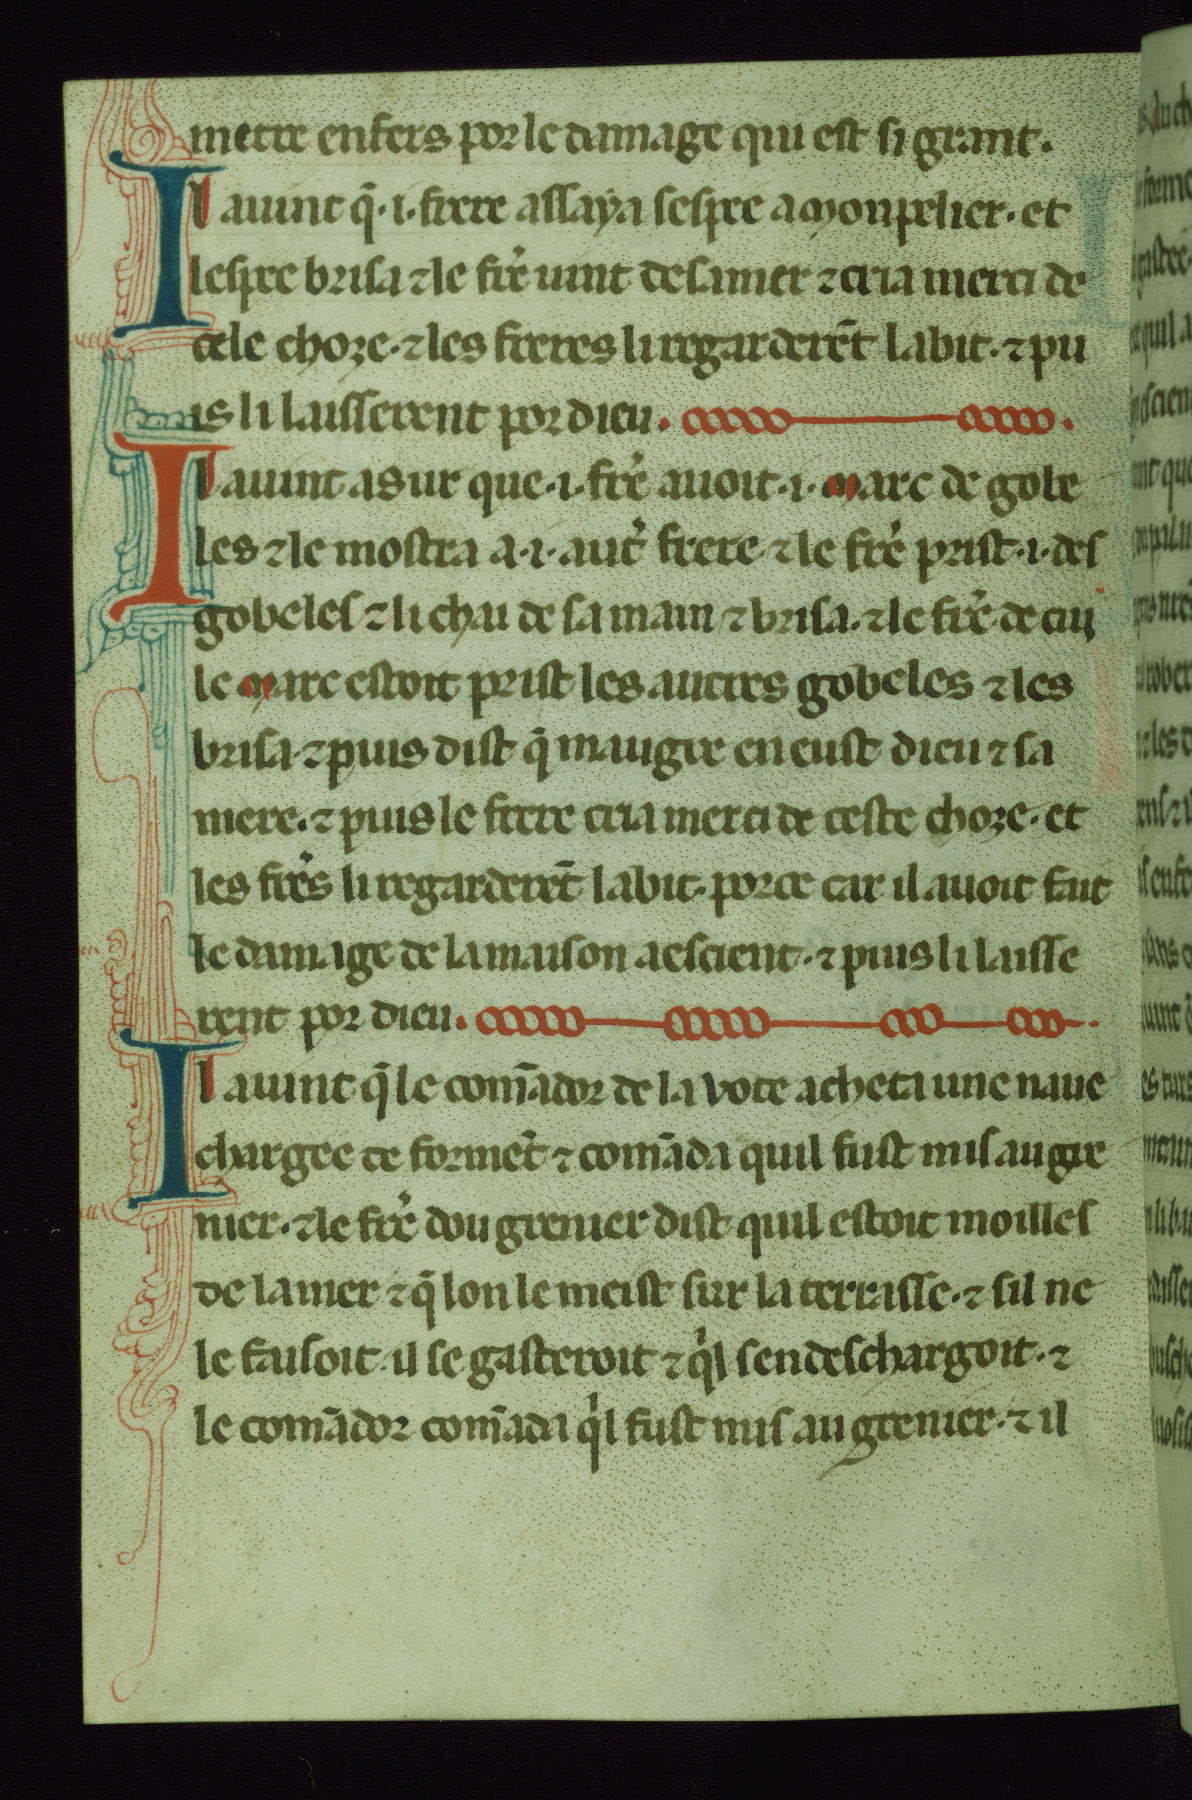 mettre enfers por le damage qui est si grant.
Il auint q̄ ·i· frere assaya sespee a monpelier· et
lespee brisa ⁊ le fr̄e uint desamer ⁊ cria merci de
cele choze· ⁊ les freres li regarderēt labit· ⁊ pu
is li laisserent por dieu·
Il auint a sur que ·i· fr̄e auoit ·i· marc de gobe
les ⁊ le mostra a ·i· autr̄ frere ⁊ le fr̄e prist ·i· des
gobeles ⁊ li chai de sa main ⁊ brisa· ⁊ le fr̄e de cui
le marc estoit prist les autres gobeles ⁊ les
brisa ⁊ puis dist q̄ maugre en eust dieu ⁊ sa
mere· ⁊ puis le frere cria merci de ceste choze· et
les fr̄es li regarderēt labit· por ce car il auoit fait
le damage de la maison a escient· ⁊ puis li laisse
rent por dieu·
Il auint q̄ le com̄ador de la vote acheta une naue
chargee de formēt ⁊ comāda quil fust mis au gre
nier· ⁊ le fr̄e dou grenier dist quil estoit moilles
de la mer ⁊ q̄ lon le meist sur la terrasse· ⁊ sil ne
le faisoit il se gasteroit ⁊ qͥl sen deschargoit· ⁊
le comādor com̄ada qͥl fust mis au grenier· ⁊ il